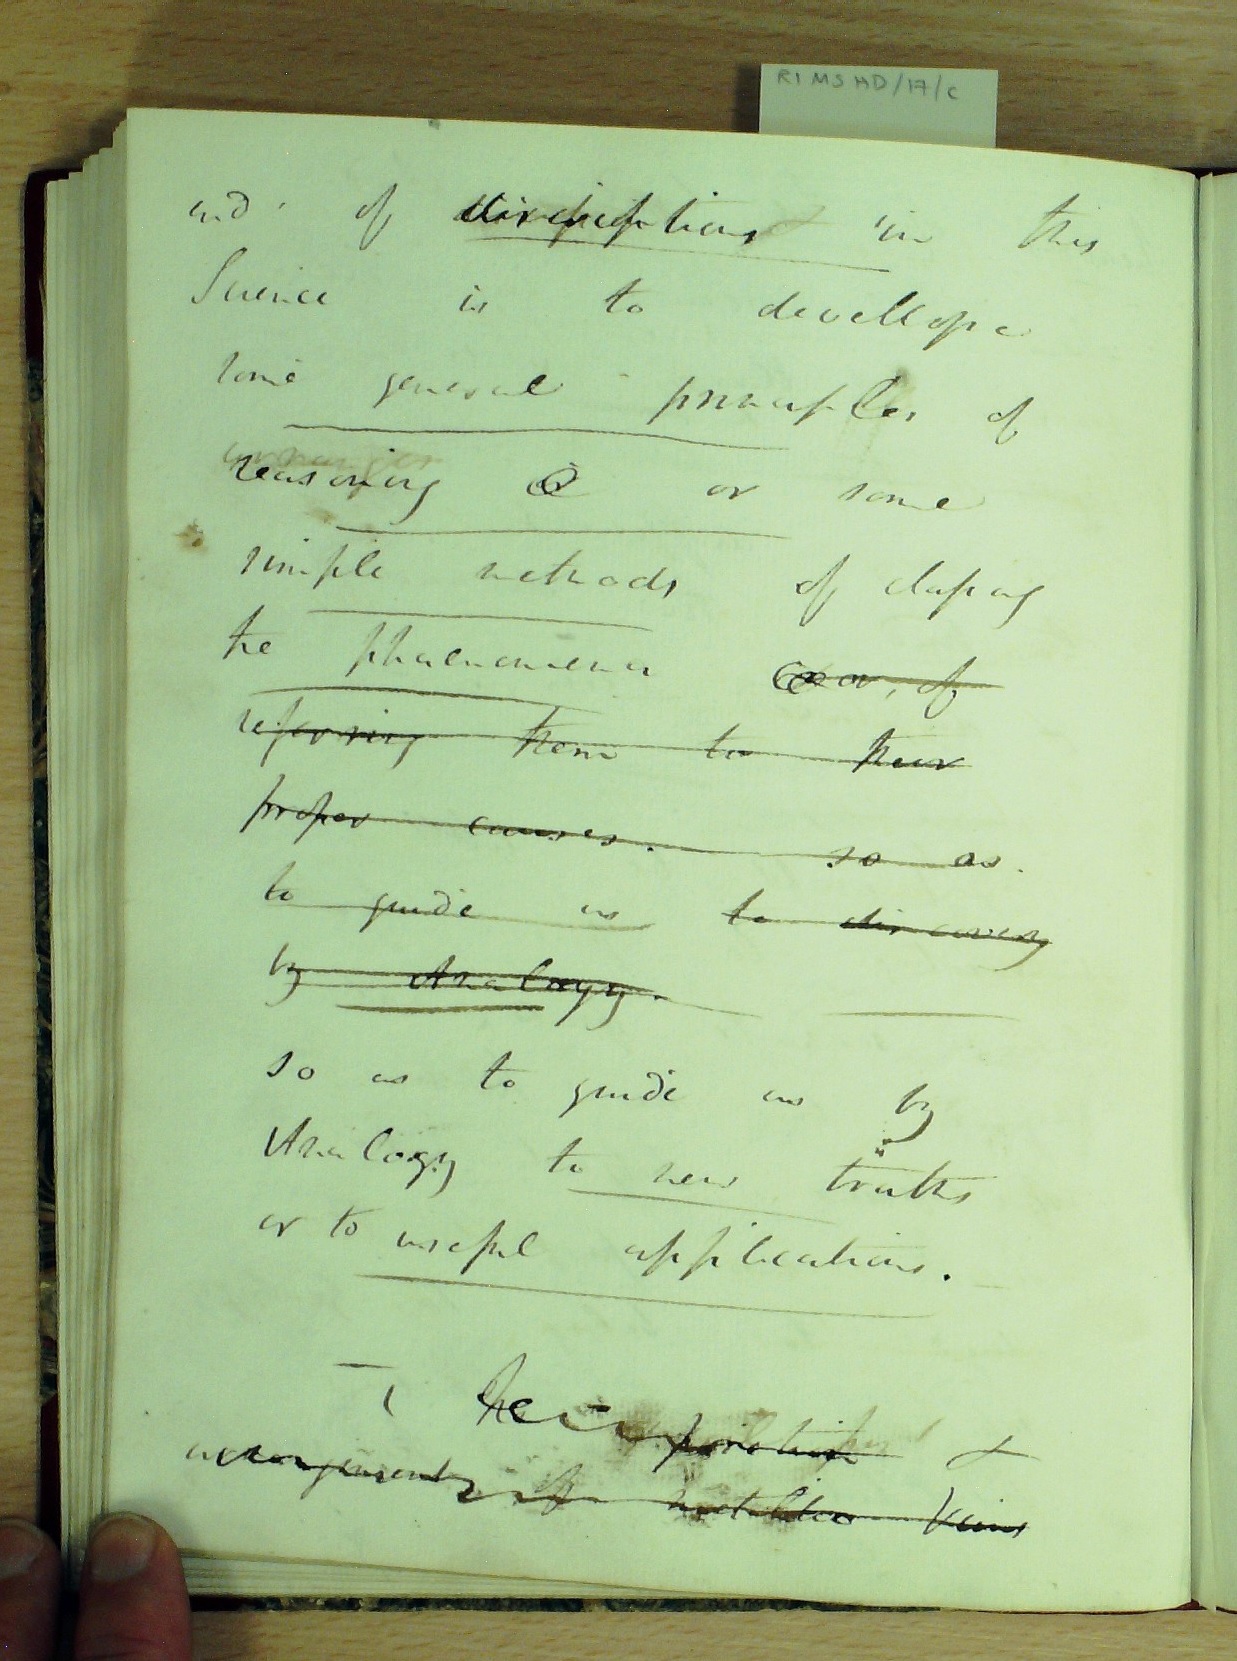 RI MS HD/17/C
end of descriptions in this
Science is to develope
some general principles of
reasoning or some
simple methods of classing
the phaenomena or, of
referring them to their
proper causes. so as
to guide us to discovery
by Analogy.
so as to guide us by
Analogy to new truths
or to useful applications.
The &
arrangements of metallic Veins